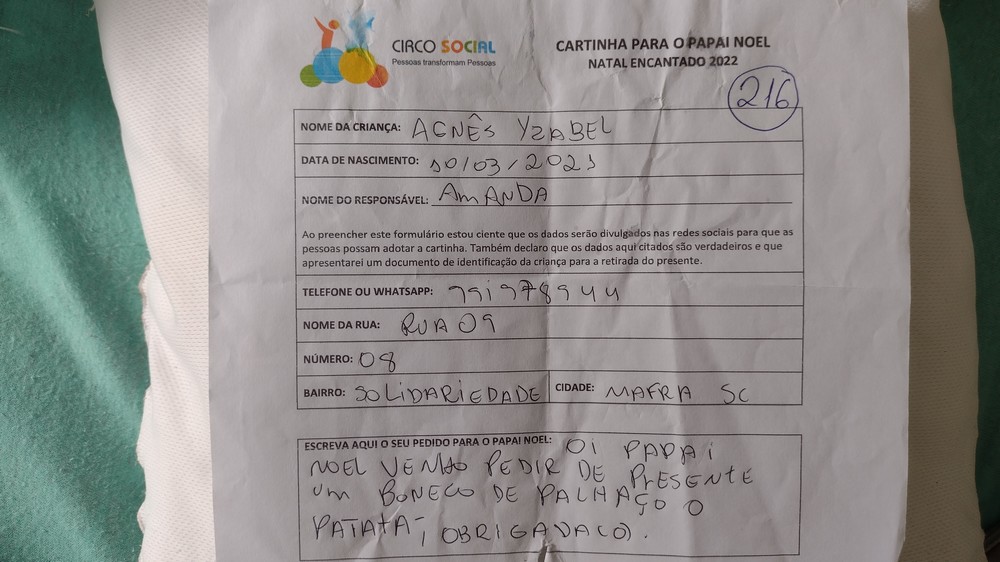 CIRCO SOCIAL
Pessoas transformam Pessoas
CARTINHA PARA O PAPAI NOEL
NATAL ENCANTADO 2022
216
NOME DA CRIANÇA: AGNÊS YZABEL
DATA DE NASCIMENTO: 10/03/2021
NOME DO RESPONSÁVEL: AMANDA
Ao preencher este formulário estou ciente que os dados serão divulgados nas redes sociais para que as
pessoas possam adotar a cartinha. Também declaro que os dados aqui citados são verdadeiros e que
apresentarei um documento de identificação da criança para a retirada do presente.
TELEFONE OU WHATSAPP: 991978944
NOME DA RUA: RUA 09
NÚMERO: 08
BAIRRO: SOLIDARIEDADE CIDADE: MAFRA SC
ESCREVA AQUI O SEU PEDIDO PARA O PAPAI NOEL: OI PAPAI
NOEL VENHO PEDIR DE PRESENTE
UM BONECO DE PALHAÇO O
PATATA-, OBRIGADA(O).